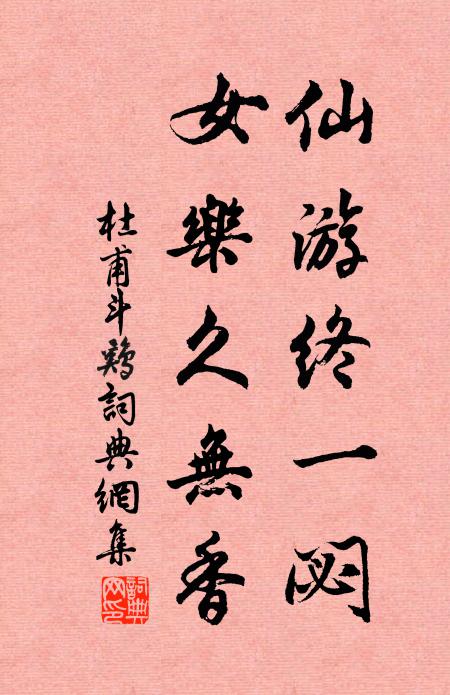 仙游終一閟
女樂久無香
杜甫斗鷄詞典網集
詞典网印